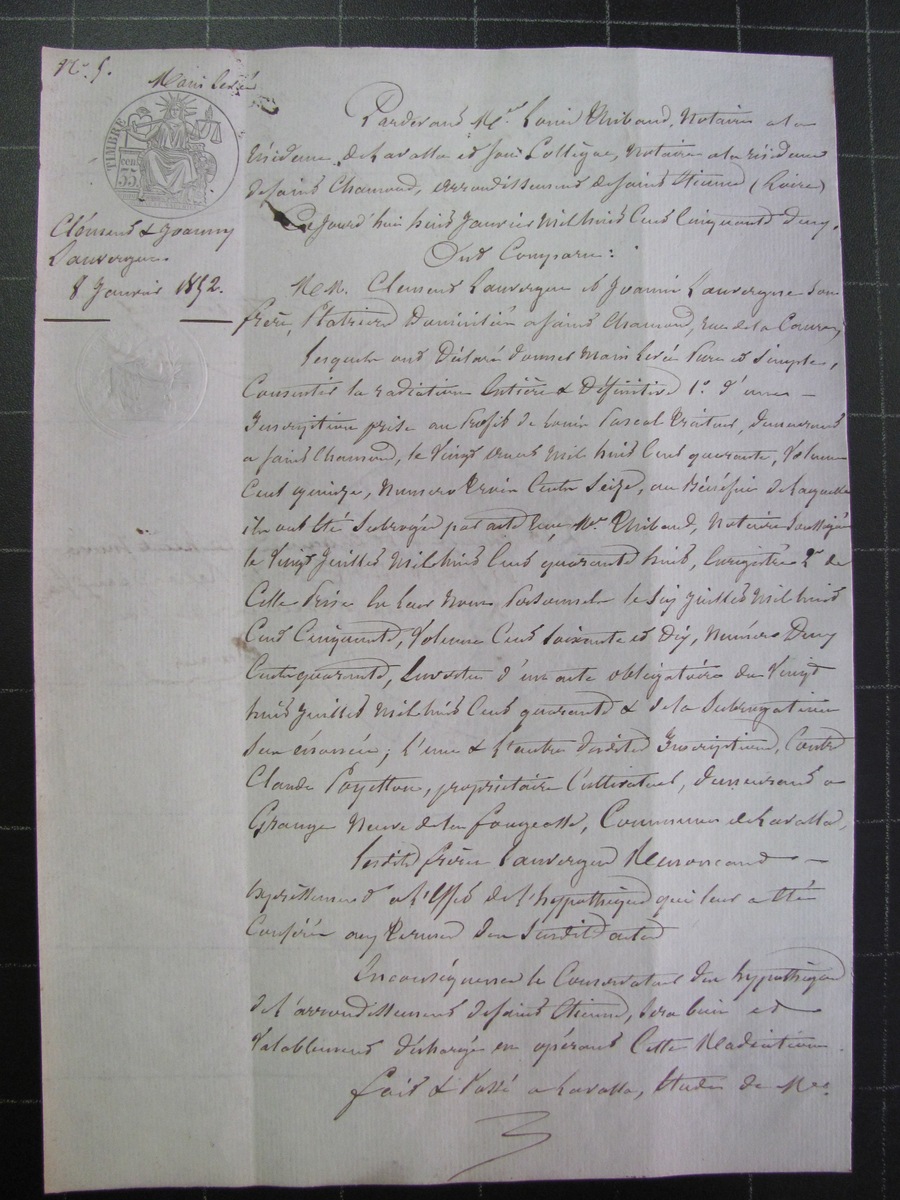 N° 5.
Main levée
TIMBRE
35 cent
Clément & Joanny
Lauvergne.
8 Janvier 1852.
Pardevant Me Louis Thibaud, Notaire a la
résidence de Lavalla et son Collègue, Notaire a la résidence
de saint Chamond, arrondissement de saint Etienne (Loire)
Cejourd'hui huit Janvier mil huit Cent Cinquante deux,
Ont Comparu:
MM. Clément Lauvergne et Joannie Lauvergne son
frère, Plâtriers Domiciliés a saint Chamond, rue de la
Lesquels ont Déclaré donner Main Levée Pure et simple,
Consentir la radiation Entière & Définitive 1° d'une
Inscription prise au Profit de Louis Pascal demeurant
a saint Chamond, le Vingt mil huit Cent quarante, Volume
Cent quinze, Numéro trois Cents Seize, au Bénéfice de laquelle
ils ont été Subrogés par acte reçu Me Thibaud, Notaire soussigné
le Vingt Juillet mil huit Cent quarante huit, Enregistré 2° de
Celle Prise En leur Noms Personnels le six Juillet mil huit
Cent Cinquante, Volume Cent soixante et dix, Numéro Deux
Cents quarante, En vertu d'un acte obligatoire du Vingt
huit Juillet mil huit Cent quarante & de la Subrogation
Sus énoncée; L'une & L'autre desdites Inscriptions, Contre
Claude Poyetton, propriétaire Cultivateur, demeurant a
Grange Neuve de la fougeasse, Commune de Lavalla,
Lesdits frères Lauvergne Renoncent
Expressément a L'Effet de L'hypothèque qui leur a été
Conférée aux Termes des Susdits actes
En conséquence le Conservateur des hypothèques
de L'arrondissement de saint Etienne, sera bien et
Valablement déchargé en opérant Cette Radiation.
fait & Passé a Lavalla, Etude de Me